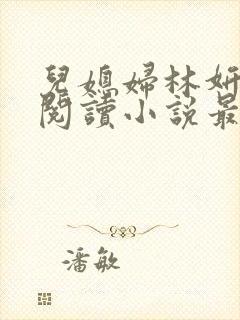 兒媳婦林妍
閱讀小說最
潘敏